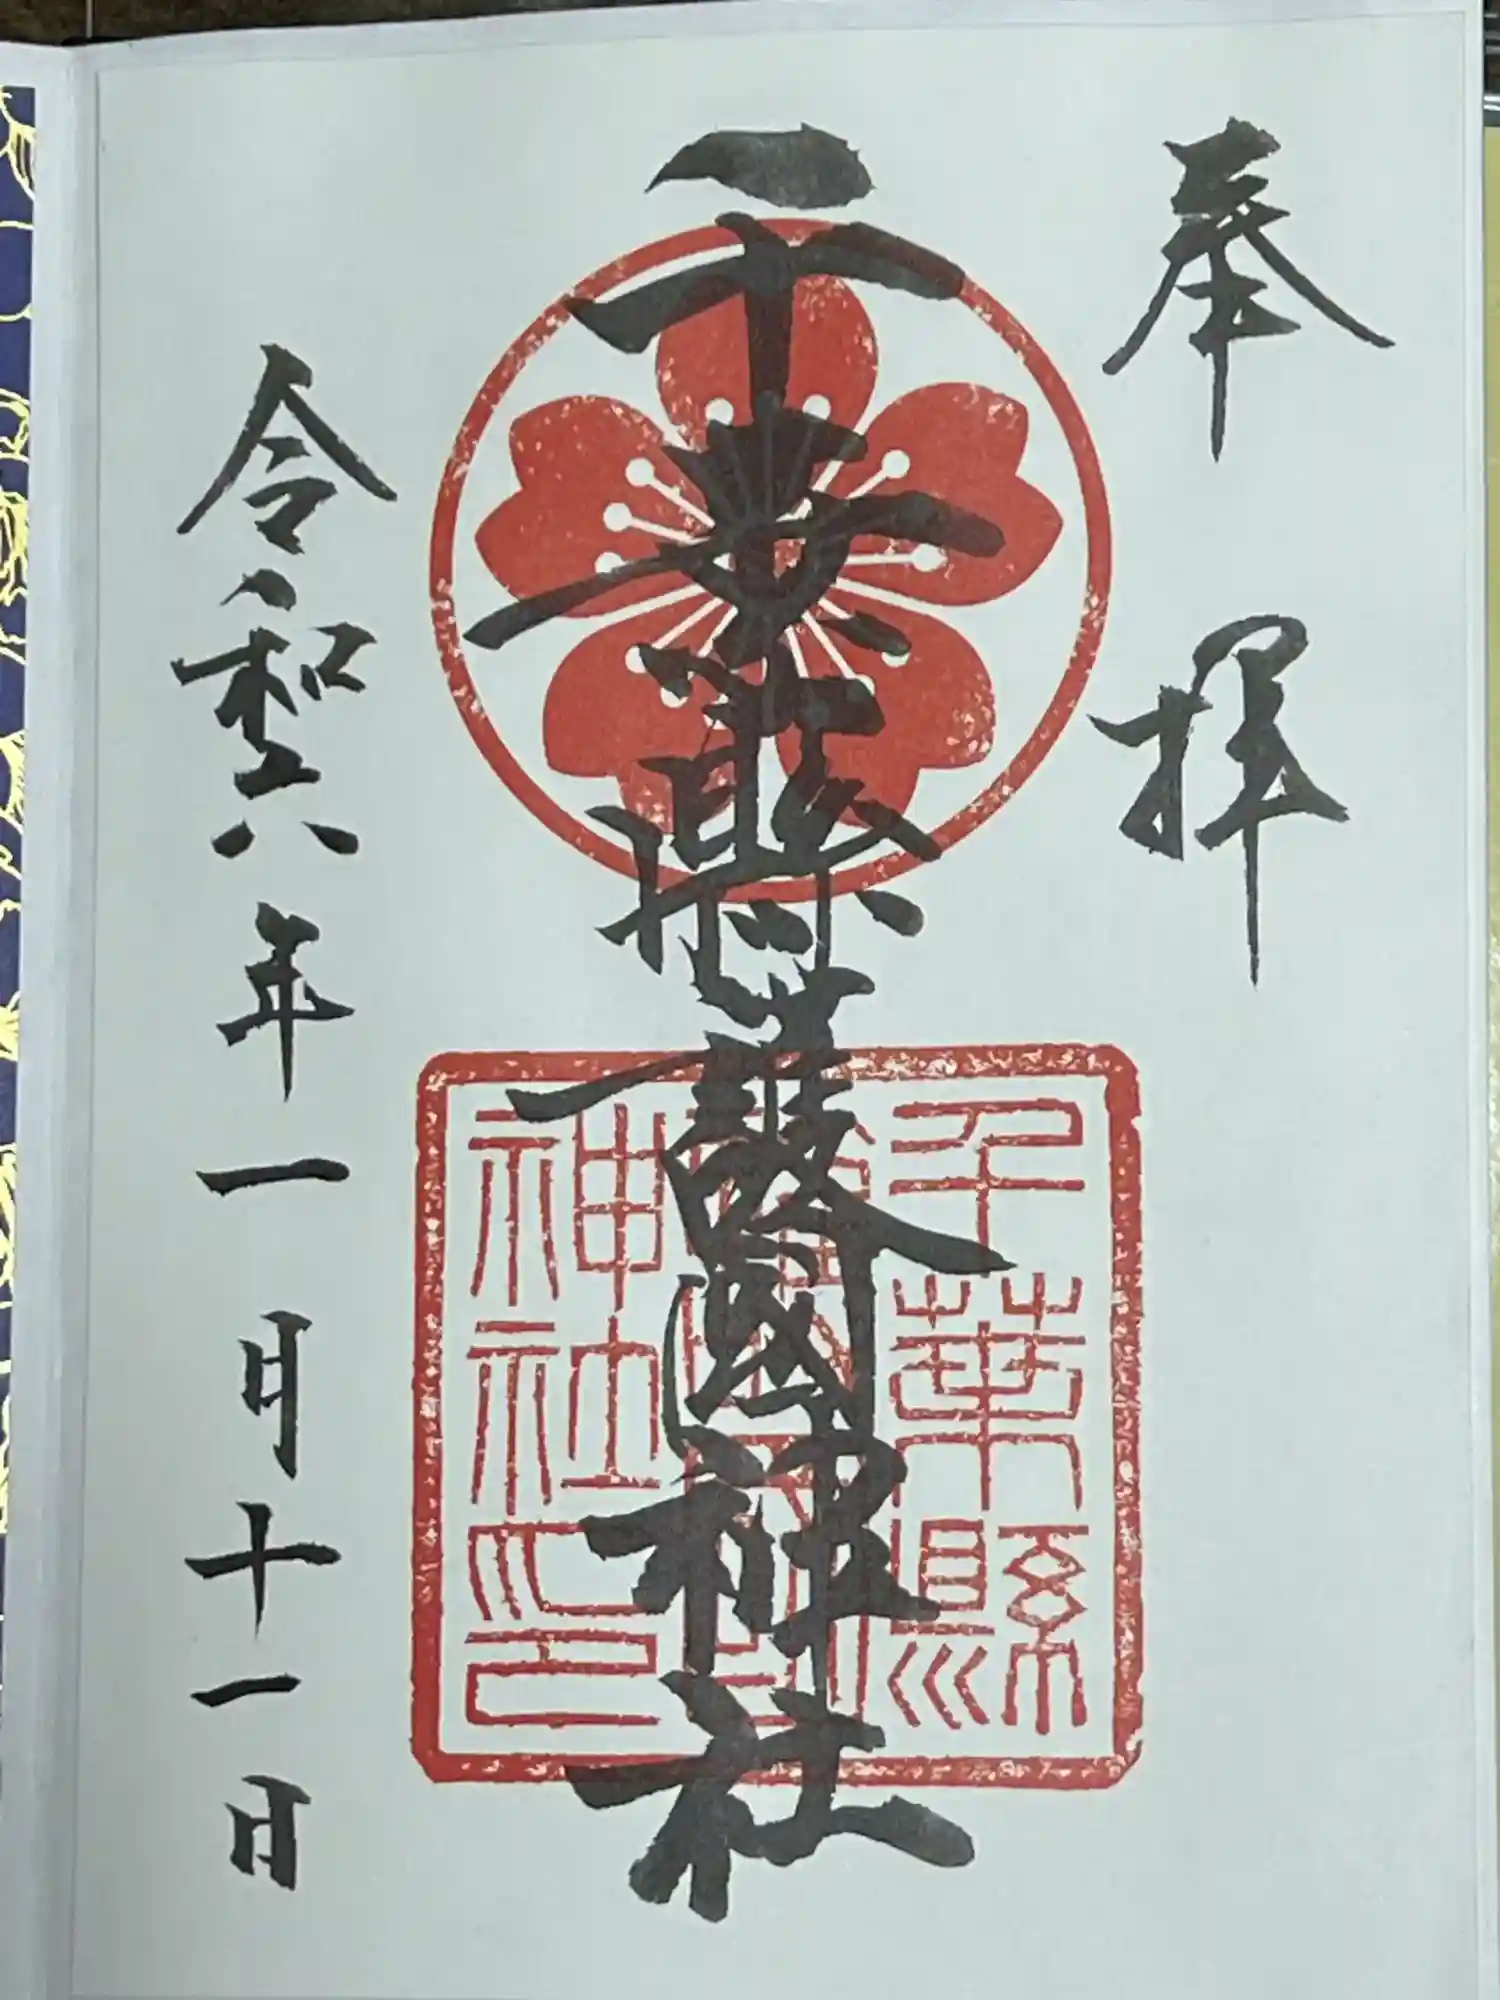 奉拝
千葉縣護國神社
千葉縣
護國神社印
令和六年一月十一日